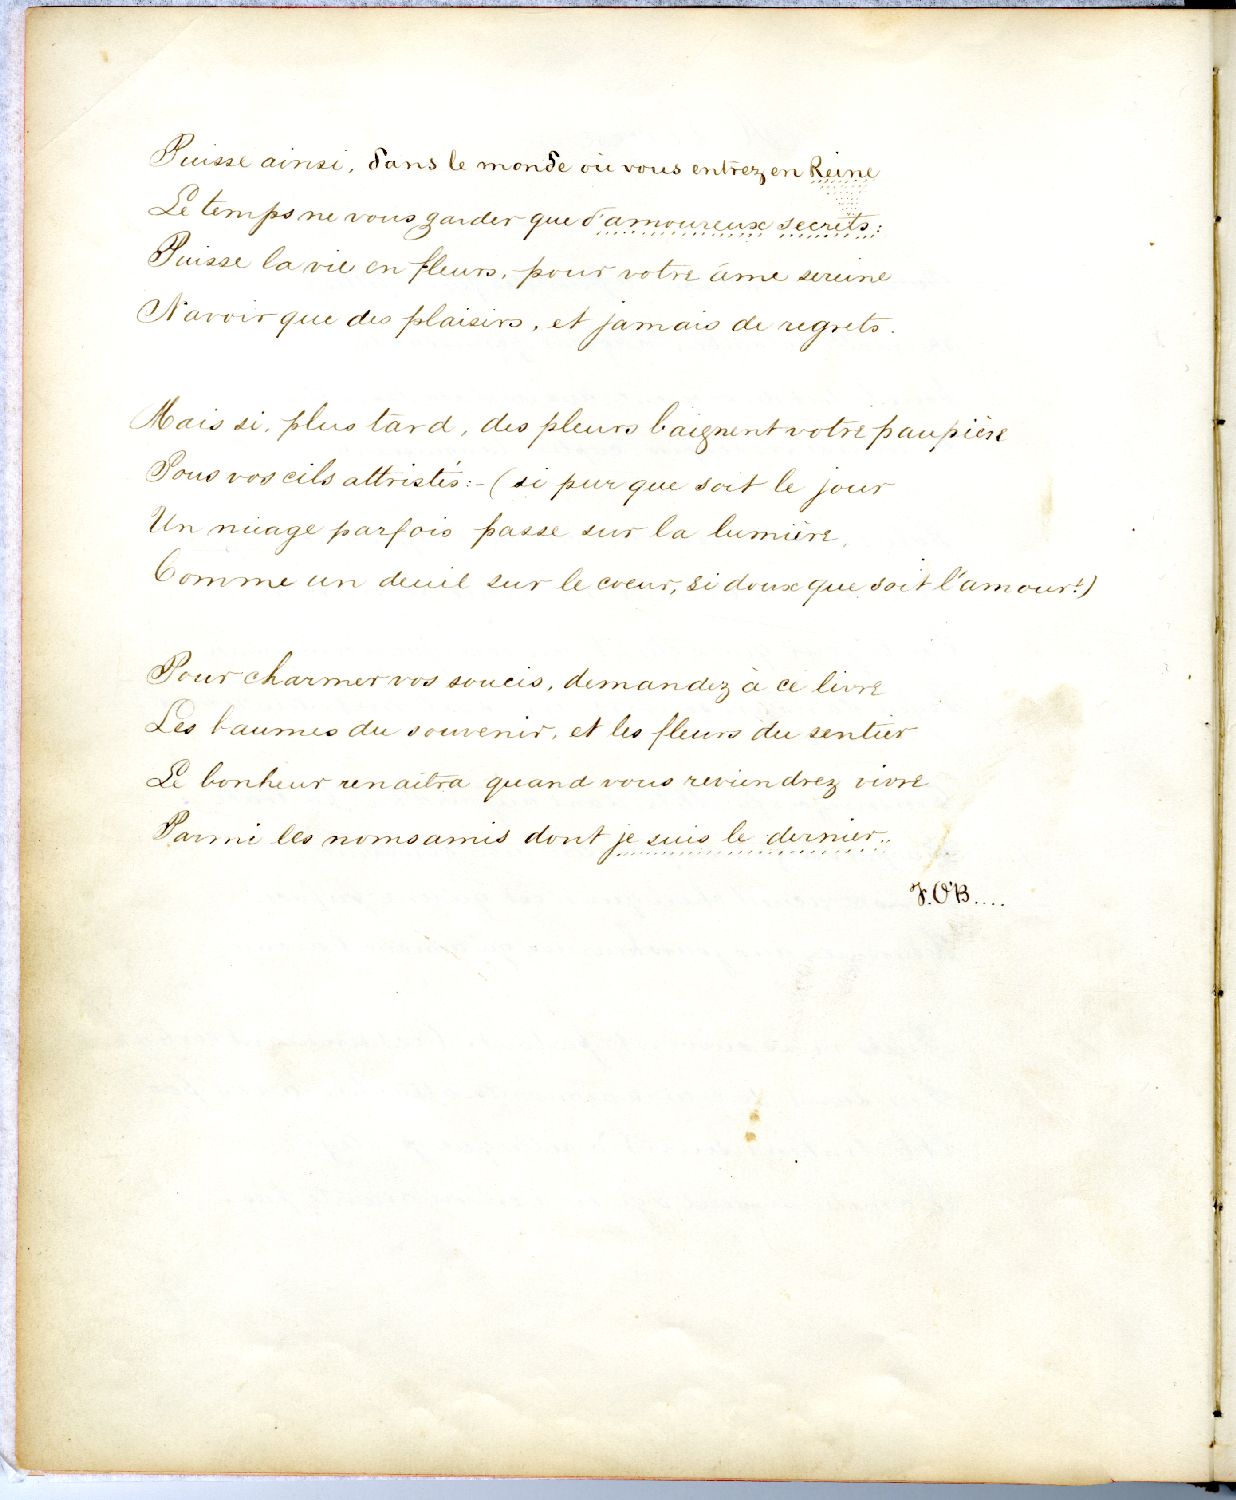 Puisse ainsi, dans le monde où vous entrez en Reine
Le temps ne vous garder que d'amoureux secrets:
Puisse la vie en fleurs, pour votre âme sereine
N'avoir que des plaisirs, et jamais de regrets.
Mais si, plus tard, des pleurs baignent votre paupière
Sous vos cils attristés:- (si pur que soit le jour
Un nuage parfois passe sur la lumière,
Comme un deuil sur le coeur, si doux que soit l'amour!)
Pour charmer vos soucis, demandez à ce livre
Les baumes du souvenir, et les fleurs du sentier
Le bonheur renaitra quand vous reviendrez vivre
Parmi les noms amis dont je suis le dernier..
J.O'B....